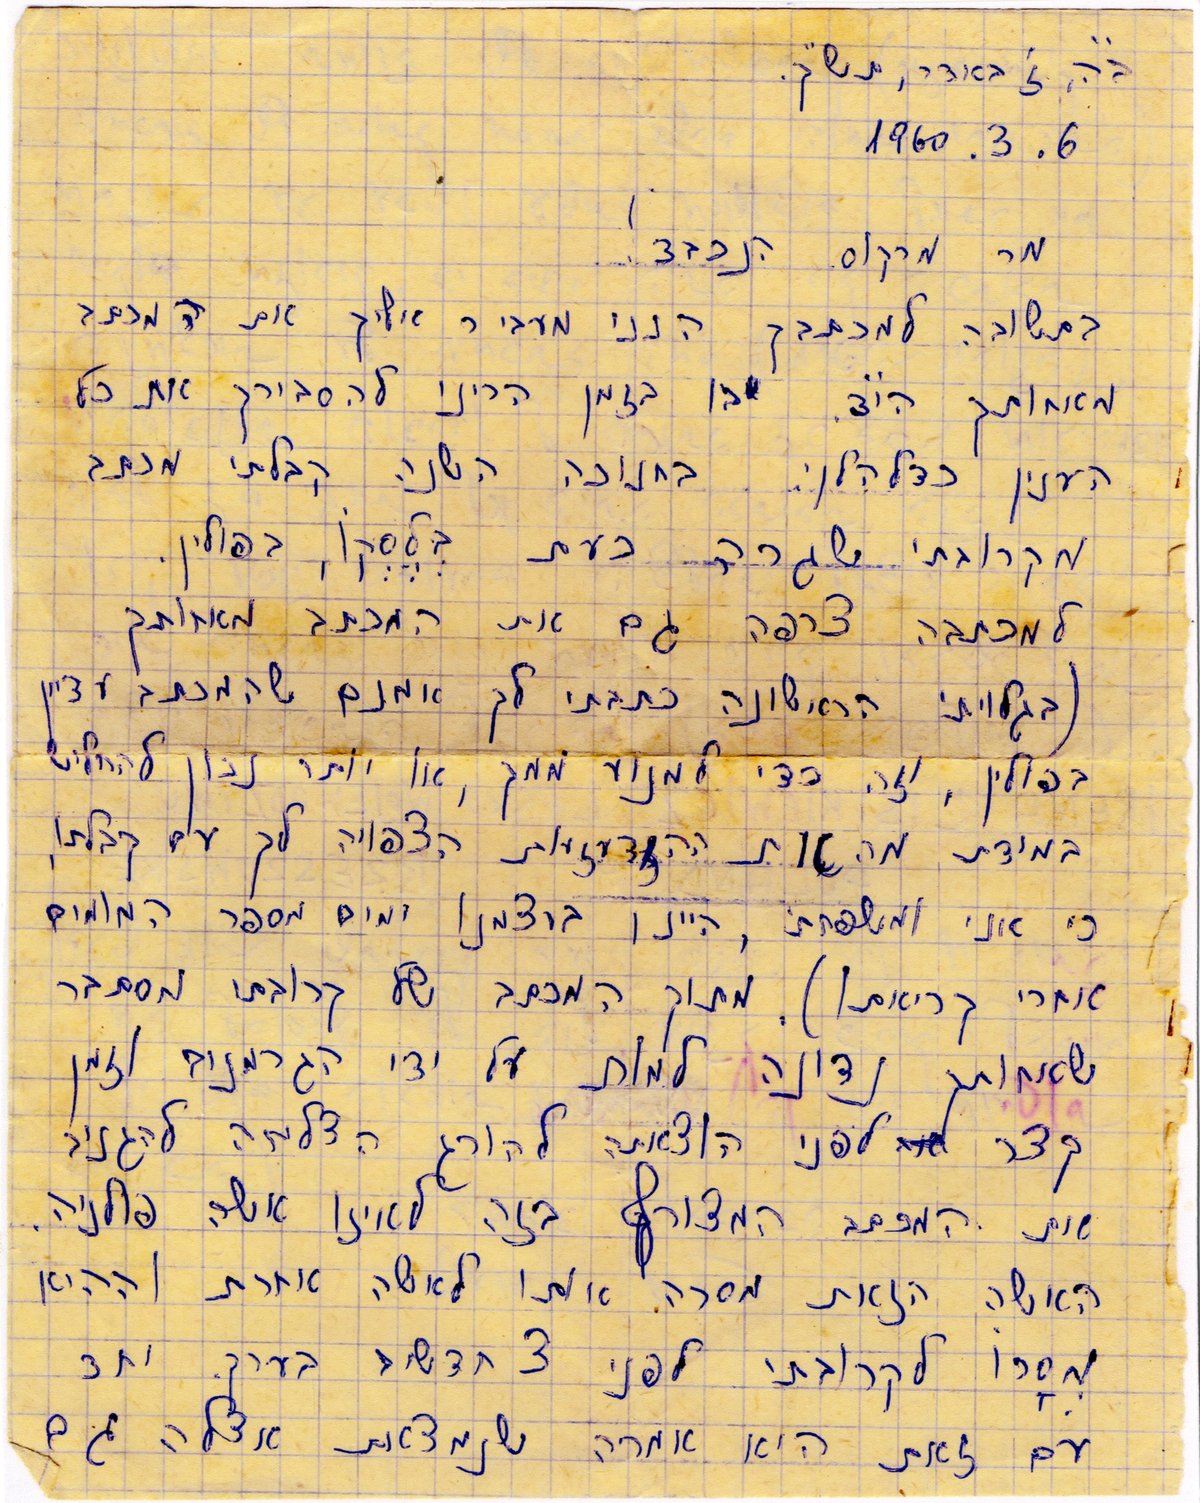 ב"ה, ז' באדר, תש"ך.
6.3.1960
מר מרקוס הנכבד!
בתשובה למכתבך הנני מעביר אליך את המכתב
מאחותך הי"ד. בו בזמן הריני להסבירך את כל
הענין כדלהלן: בחנוכה השנה קבלתי מכתב
מקרובתי שגרה כעת בְּלֶסְקוֹ, בפולין.
למכתבה צרפה גם את המכתב מאחותך
(בגלויתי הראשונה כתבתי לך אמנם שהמכתב עדיין
בפולין, וזה כדי למנוע ממך, או יותר נכון להחליש
במידת מה את ההזדעזעות הצפויה לך עם קבלתו,
כי אני ומשפחתי, היינו בעצמנו ימים מספר המומים
אחרי קריאתו). מתוך המכתב של קרובתי מסתבר
שאחותך נדונה למות על ידי הגרמנים וזמן
קצר לפני הוצאתה להורג הצליחה להגניב
את המכתב המצורף בזה לאיזו אשה פולניה.
האשה הזאת מסרה אותו לאשה אחרת וההיא
מְסָרוֹ לקרובתי לפני 3 חדשים בערך. יחד
עם זאת היא אמרה שנמצאת אצלה גם